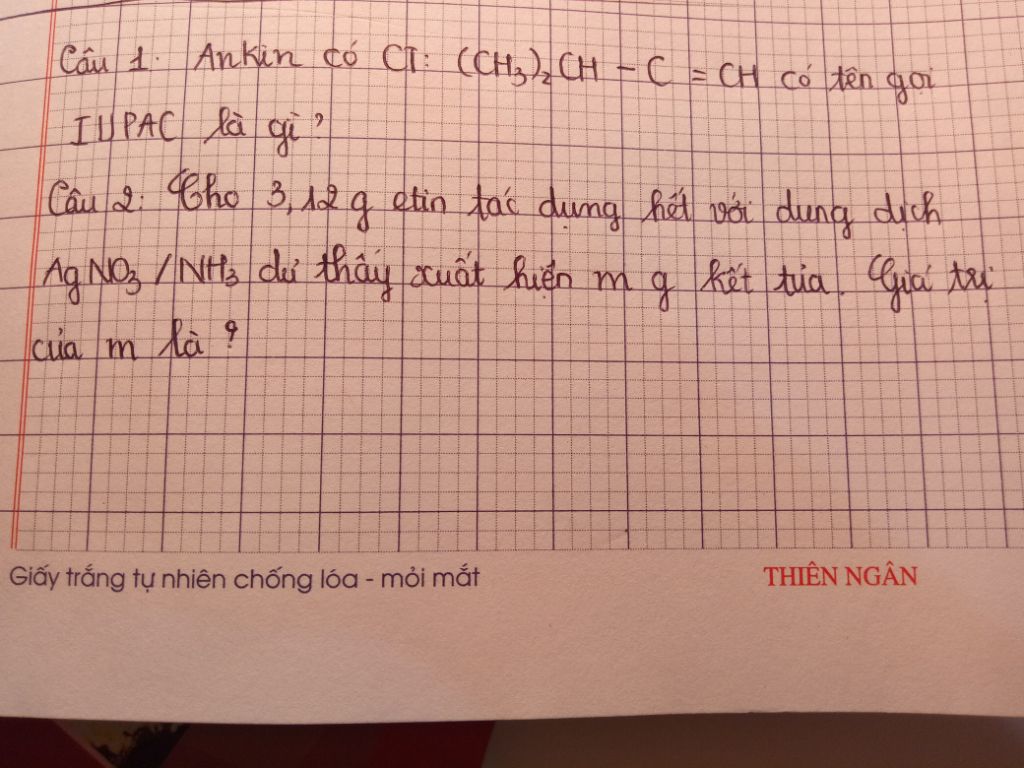 Câu 1. Ankin có CT: (CH₃)₂CH – C ≡ CH có tên gọi
IUPAC là gì?
Câu 2: Cho 3,12 g etin tác dụng hết với dung dịch
AgNO₃/NH₃ dư thấy xuất hiện m g kết tủa. Giá trị
của m là?
Giấy trắng tự nhiên chống lóa - mỏi mắt
THIÊN NGÂN